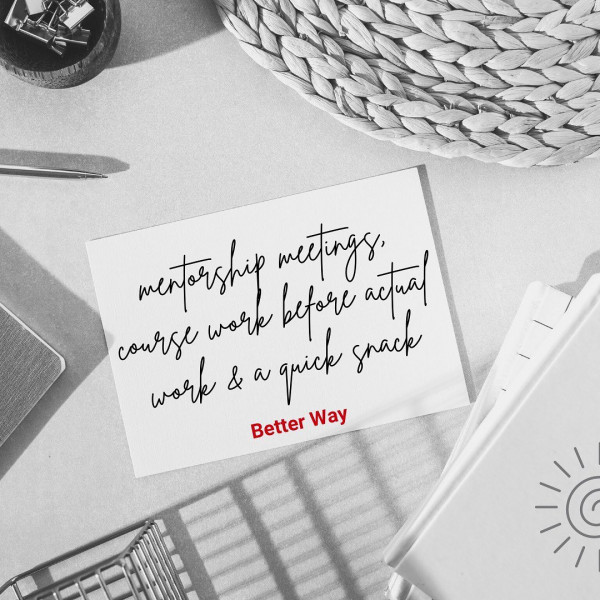 mentorship meetings,
course work before actual
work & a quick snack
Better Way